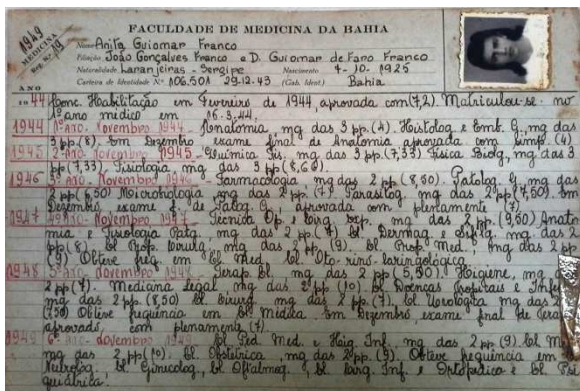 FACULDADE DE MEDICINA DA BAHIA
1949
MEDICINA
Reg. No. 19
Nome Anita Guiomar Franco
Filiação João Gonçalves Franco e D. Guiomar de Faro Franco
Naturalidade Laranjeiras - Sergipe Nascimento 7-10-1925
Carteira de Identidade No 106.501 29-12-43 (Gab. Ident) Bahia
ANO
1944 Conc. Habilitação em Fevereiro de 1944, aprovada com (7,2). Matriculou-se no
1º ano médico em 16.3.44.
1944 1º ano. Novembro 1944 - Anatomia, mg das 3 pp. (4). Histolog e Emb. G., mg das
3 pp (8). Em Dezembro exame final de Anatomia aprovada com simp. (4)
1945 2º ano. Novembro 1945 - Química Fis. mg das 3 pp. (7,33) Física Biolg, mg das 3
pp (7,33) Fisiologia mg das 3 pp (8,69).
1946 3º ano. Novembro 1946 - Farmacologia, mg das 2 pp (8,50). Patolog. G, mg das
2 pp (6,50) Microbiologia mg das 2 pp (7) Parasitog. mg das 2 pp (7,50). Em
Dezembro exame f. de Patog. G, aprovada com plenamente (7)
1947 4º ano. Novembro 1947 - Técnica Op. e Cirg exp. mg das 2 pp. (9,50) Anato
mia e Fisiologia Patg, mg das 2 pp (7) Cl Dermag. e Sifilg, mg das 2
pp (8) Cl Prop. Cirurg, mg das 2 pp. (9). Cl Prop Med, mg das 2 pp
(9) Obteve freq. em Cl Med. Cl Oto-rino-laringológica.
1948 5º ano. Novembro 1948 - Terap. Cl. mg das 2 pp (5,50) Higiene, mg
2 pp (7). Medicina Legal, mg das 2 pp (10) Cl Doenças tropicais e Infec
mg das 2 pp (8,50) Cl Cirurg mg das 2 pp. (7). Cl Urologica mg das 2
(7,50) Obteve frequencia em Cl Médica Em Dezembro, exame final de Terap
aprovado, com plenamente (7).
1949 6º ano. Novembro 1949. Cl Ped. Med. e Hig. Inf. mg das 2 pp. (9). Cl M
mg das 2 pp (10). Cl Obstetrica, mg das 2 pp. (9). Obteve frequencia em
Neurolog. Cl Ginecolog, Cl Oftalmog. Cl Cirg. Inf. e Ortopedica e Cl Psi
quiátrica.